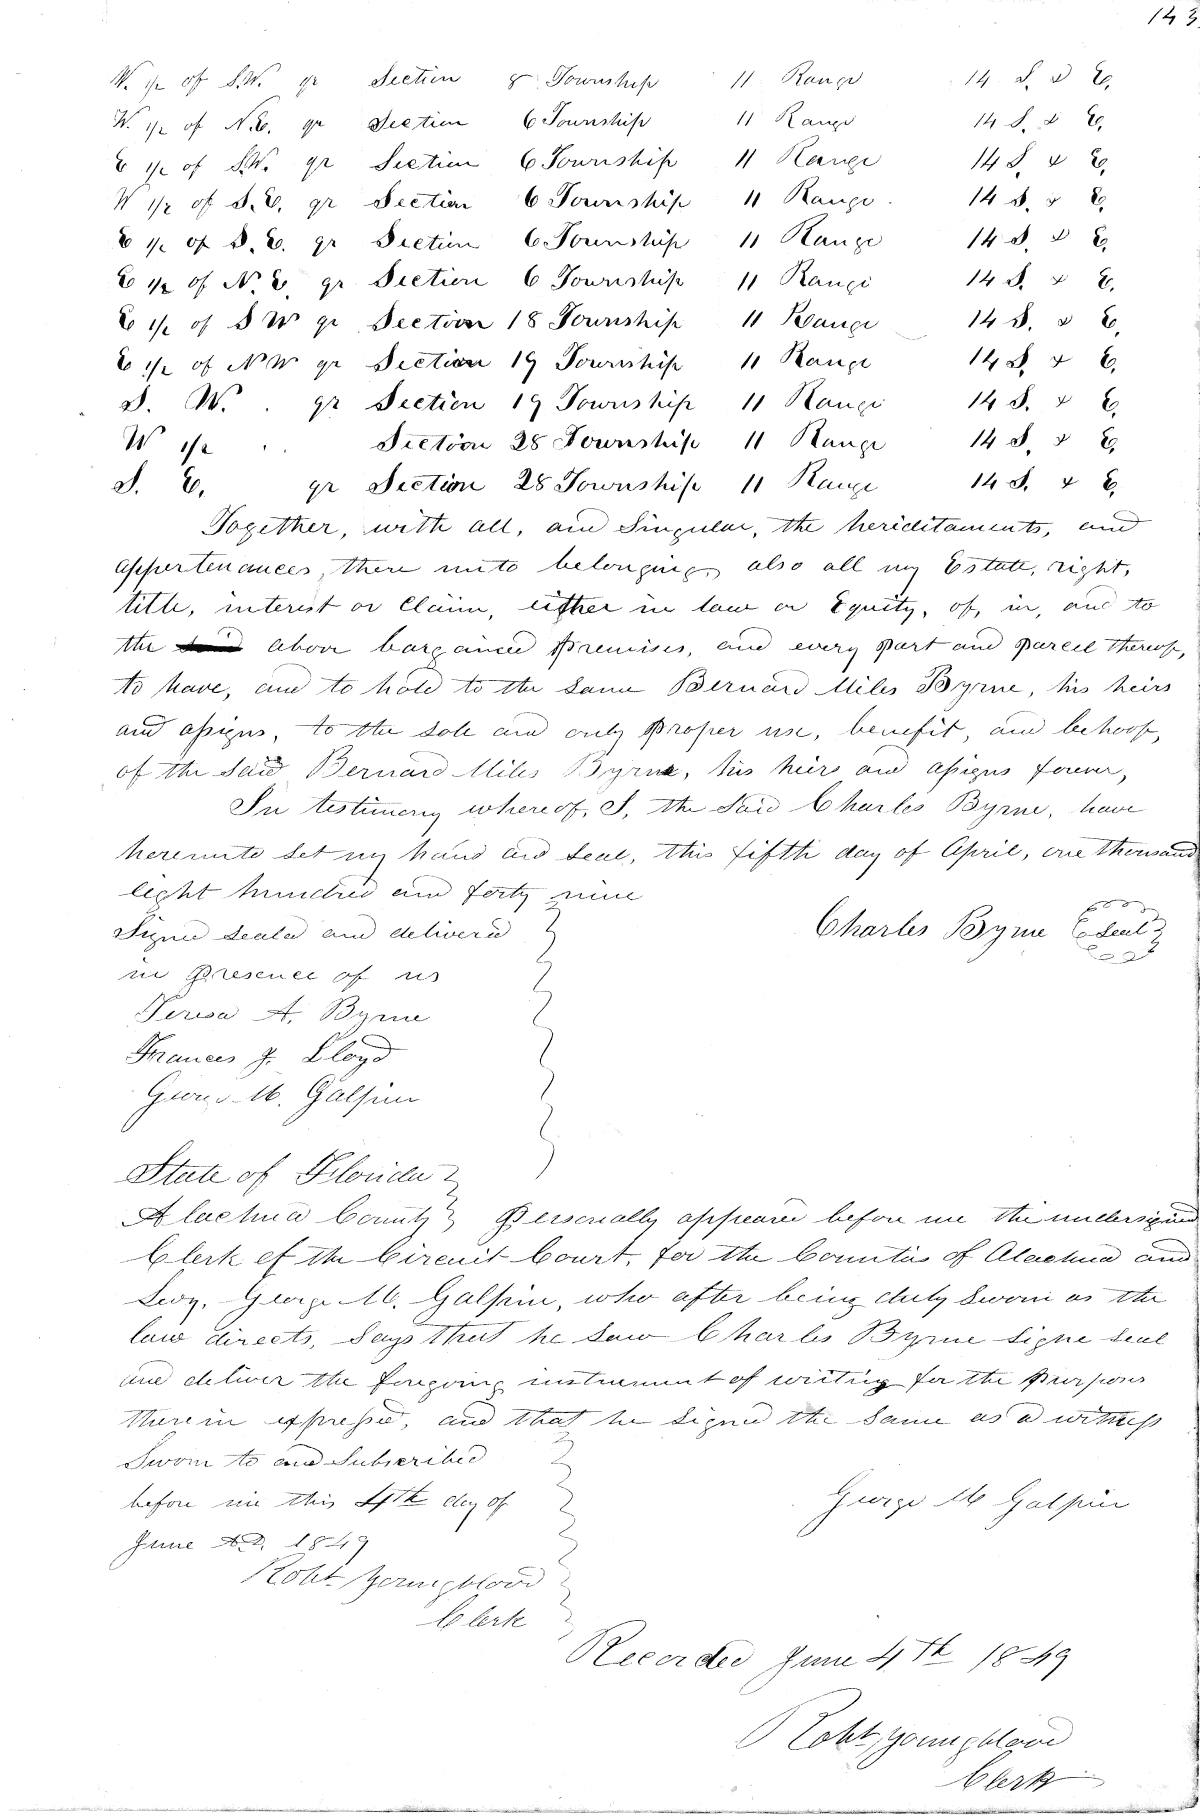 143
W. 1/2 of S.W. qr Section 8 Township 11 Range 14 S. & E.
W. 1/2 of N.E. qr Section 6 Township 11 Range 14 S. & E.
E 1/2 of S.W. qr Section 6 Township 11 Range 14 S. & E.
W 1/2 of S.E. qr Section 6 Township 11 Range 14 S. & E.
E 1/2 of S.E. qr Section 6 Township 11 Range 14 S. & E.
E 1/2 of N.E. qr Section 6 Township 11 Range 14 S. & E.
E 1/2 of S W qr Section 18 Township 11 Range 14 S. & E.
E 1/2 of N W qr Section 19 Township 11 Range 14 S. & E.
S. W. qr Section 19 Township 11 Range 14 S. & E.
W 1/2 Section 28 Township 11 Range 14 S. & E.
S. E. qr Section 28 Township 11 Range 14 S. & E.
Together, with all, and Singular, the heriditaments, and
appertenances, there unto belonging, also all my Estate, right,
title, interest or Claim, either in law or Equity, of, in, and to
the said above bargained premises, and every part and parcel thereof,
to have, and to hold to the same Bernard Miles Byrne, his heirs
and assigns, to the sole and only proper use, benefit, and behoof,
of the said Bernard Miles Byrne, his heirs and assigns forever,
In testimony whereof, I, the said Charles Byrne, have
hereunto set my hand and seal, this fifth day of April, one thousand
eight hundred and forty nine
Signed sealed and delivered
Charles Byrne Seal
in presence of us
Teresa A. Byrne
Frances J. Lloyd
George M. Galphin
State of Florida
Alachua County Personally appeared before me the undersigned
Clerk of the Circuit Court, for the Counties of Alachua and
Levy, George M. Galphin, who after being duly sworn as the
law directs, says that he saw Charles Byrne signe seal
and deliver the foregoing instrument of writing for the purposes
therein expressed, and that he signed the same as a witness
Sworn to and Subscribed
before me this 4th day of
George M Galphin
June A.D. 1849
Robt Youngblood
Clerk
Recorded June 4th 1849
Robt Youngblood
Clerk